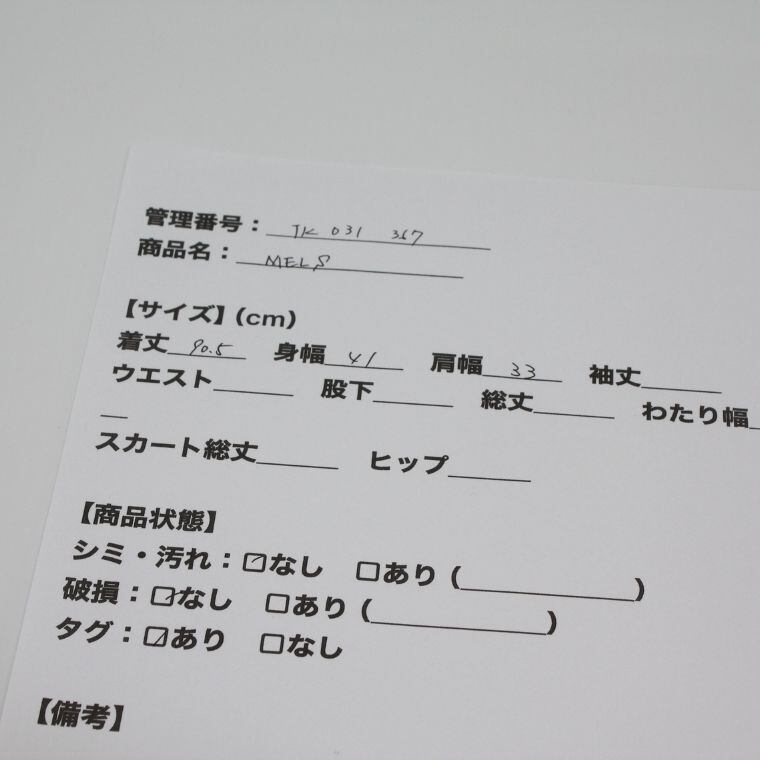 管理番号：IK 031 367
商品名：MELS
【サイズ】(cm)
着丈 90.5 身幅 41 肩幅 33 袖丈
ウエスト 股下 総丈 わたり幅
スカート総丈 ヒップ
【商品状態】
シミ・汚れ：☑なし □あり ( )
破損：☑なし □あり ( )
タグ：☑あり □なし
【備考】